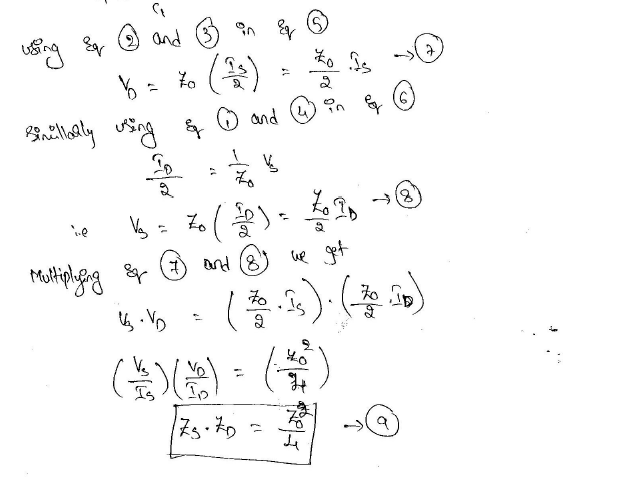 using Eq ② and ③ in Eq ⑤
V_D = Z_0 (I_S/2) = Z_0/2 . I_S → ⑦
Simillally using Eq ① and ④ in Eq ⑥
I_D/2 = 1/Z_0 V_S
i.e V_S = Z_0 (I_D/2) = Z_0/2 I_D → ⑧
Multiplying Eq ⑦ and ⑧ we get
V_S . V_D = (Z_0/2 . I_S) . (Z_0/2 . I_D)
(V_S/I_S) (V_D/I_D) = (Z_0^2/4)
Z_S . Z_D = Z_0^2/4 → ⑨